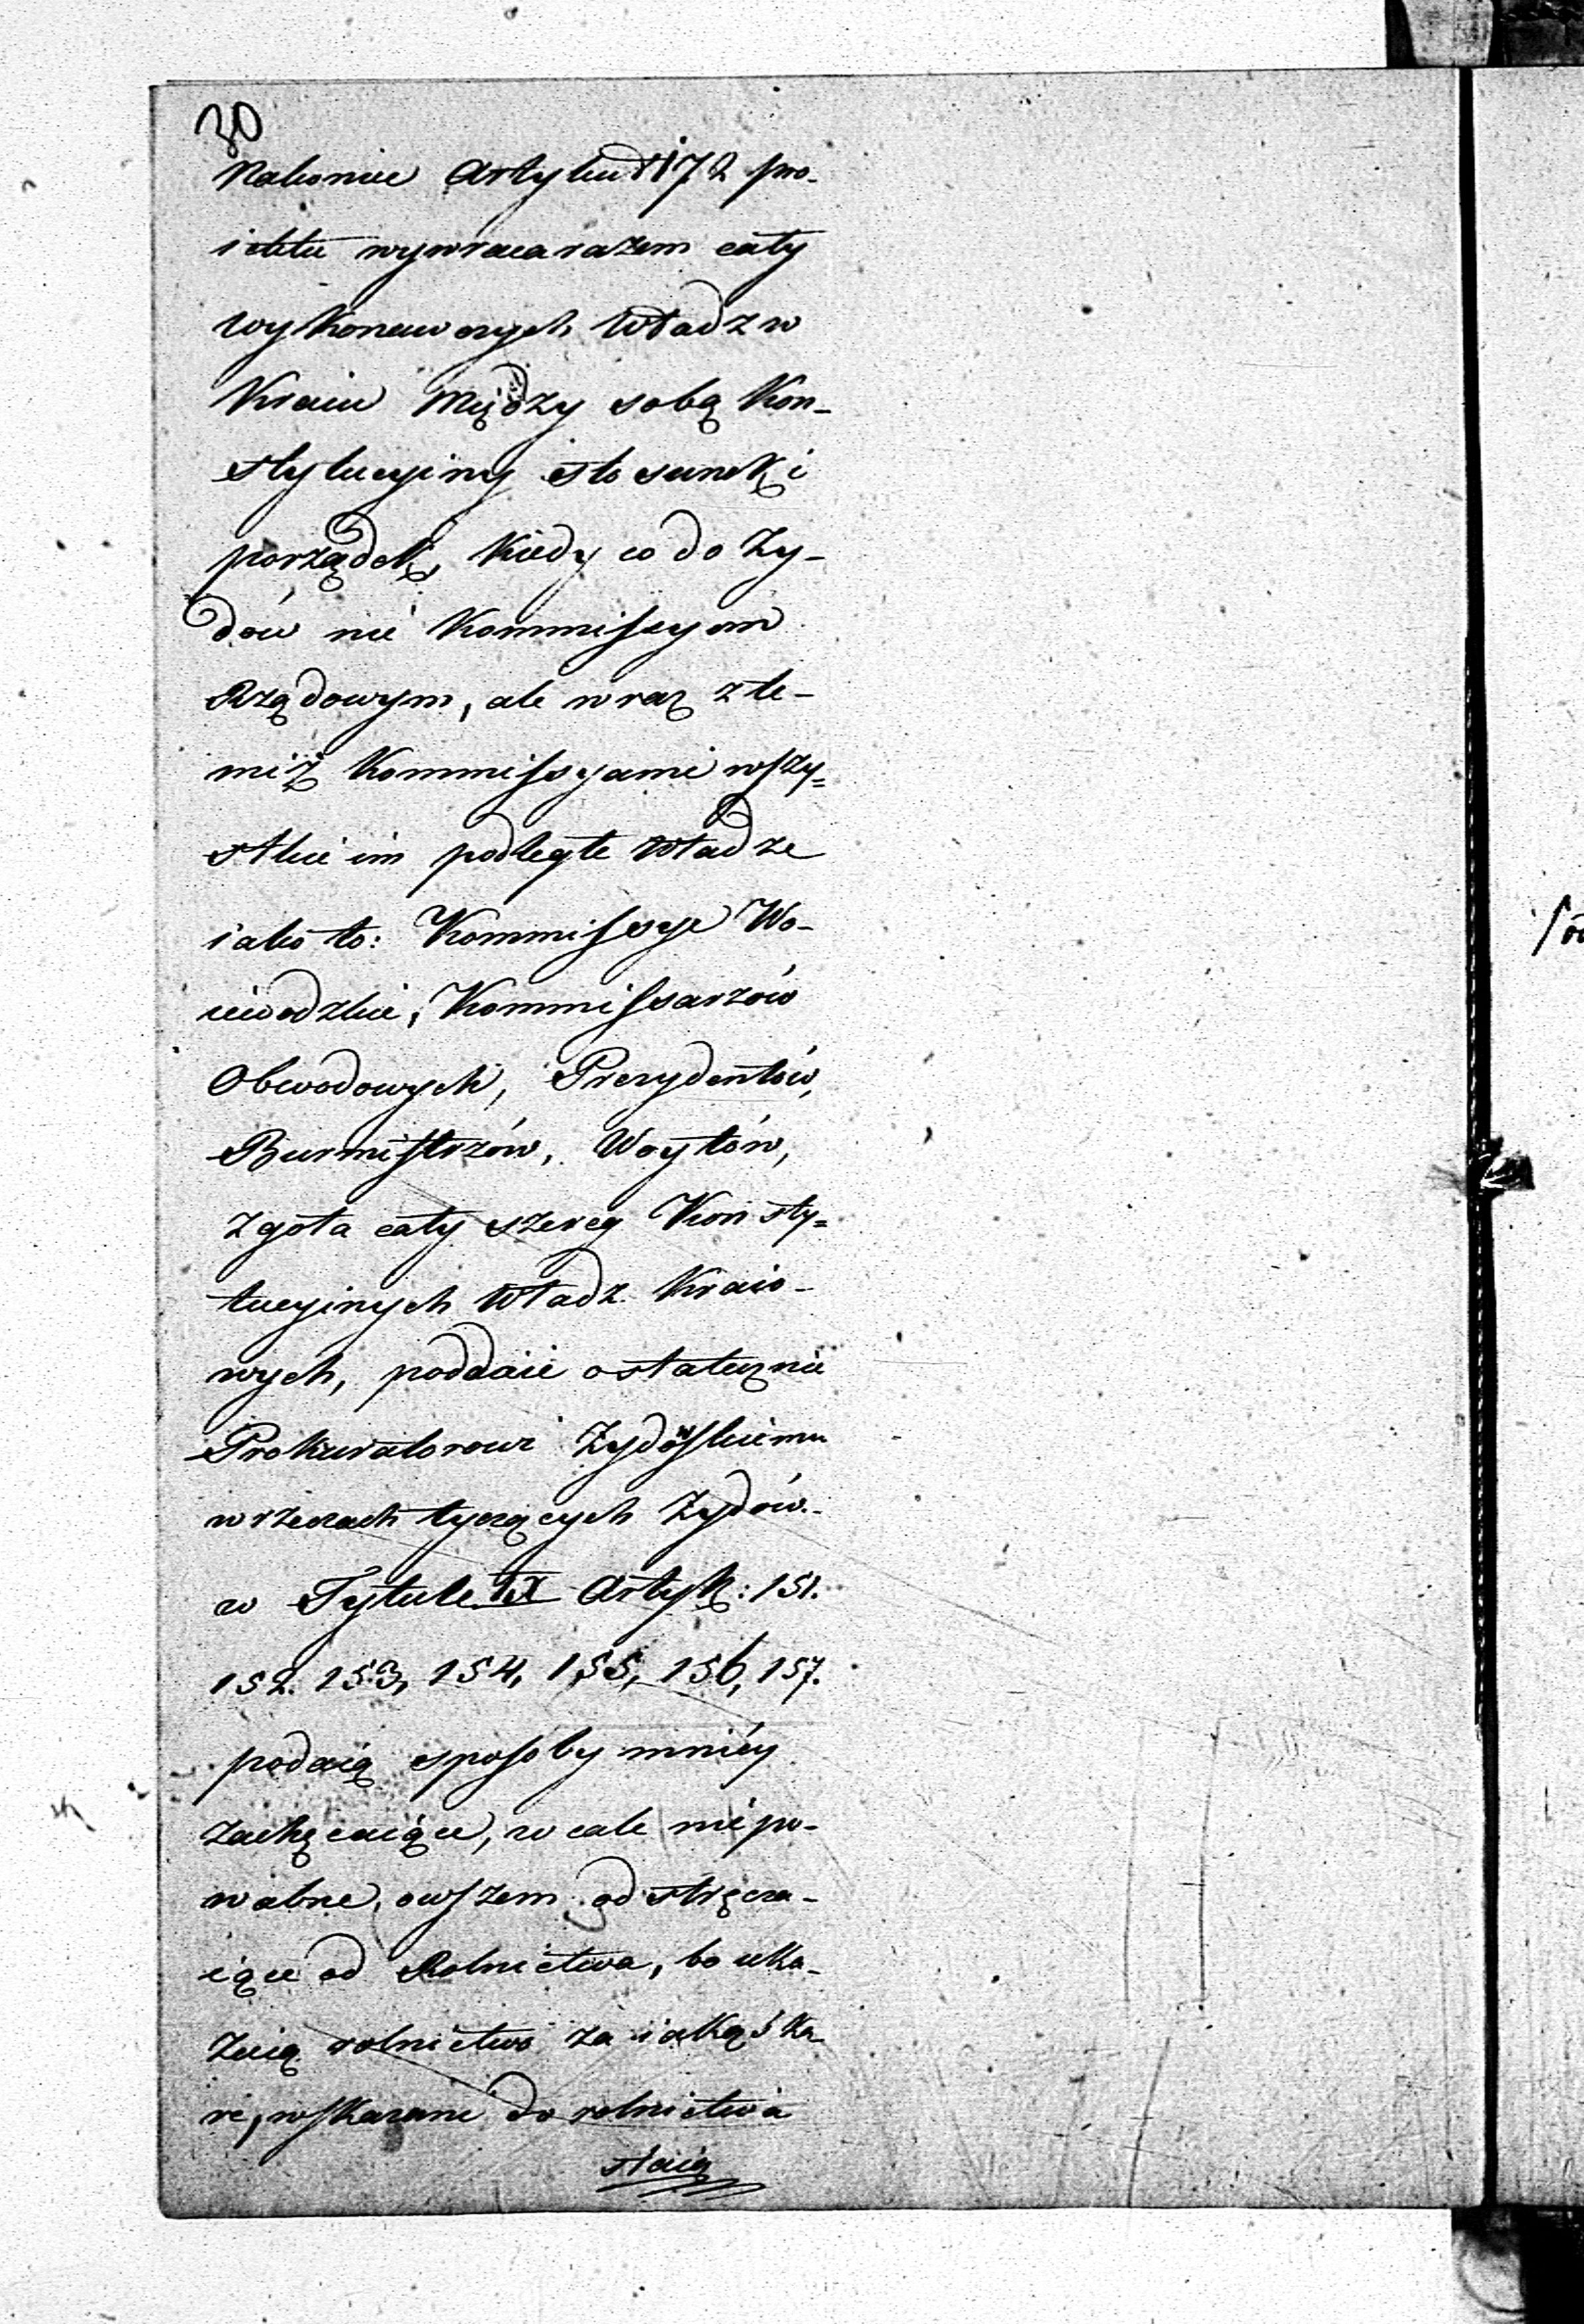 30
Nakoniec Artykuł 172 pro-
iektu wywraca razem cały
wykonawczych Władz w
Kraiu między sobą Kon-
stytucyiny stosunek i
porządek, kiedy co do Ży-
dów nie Kommissyom
Rządowym, ale wraz z te-
miż Kommissyami wszy=
stkie im podległe Władze
iako to: Kommissye Wo-
iewodzkie, Kommissarzów
Obwodowych, Prezydentów,
Burmistrzów, Woytów,
zgoła cały szereg Konsty=
tucyinych Władz Kraio-
wych, poddaie ostatecznie
Prokuratorowi Żydowskiemu
w rzeczach tyczących Żydów.-
w Tytule IX Artyk: 151.
152. 153, 154, 155, 156, 157.
podaią sposoby mniéy
zachęcaiące, wcale nie po-
wabne, owszem odstręcza-
iące od Rolnictwa, bo uka-
zuią rolnictwo za iakąś ka-
rę, wskazani do rolnictwa
staią